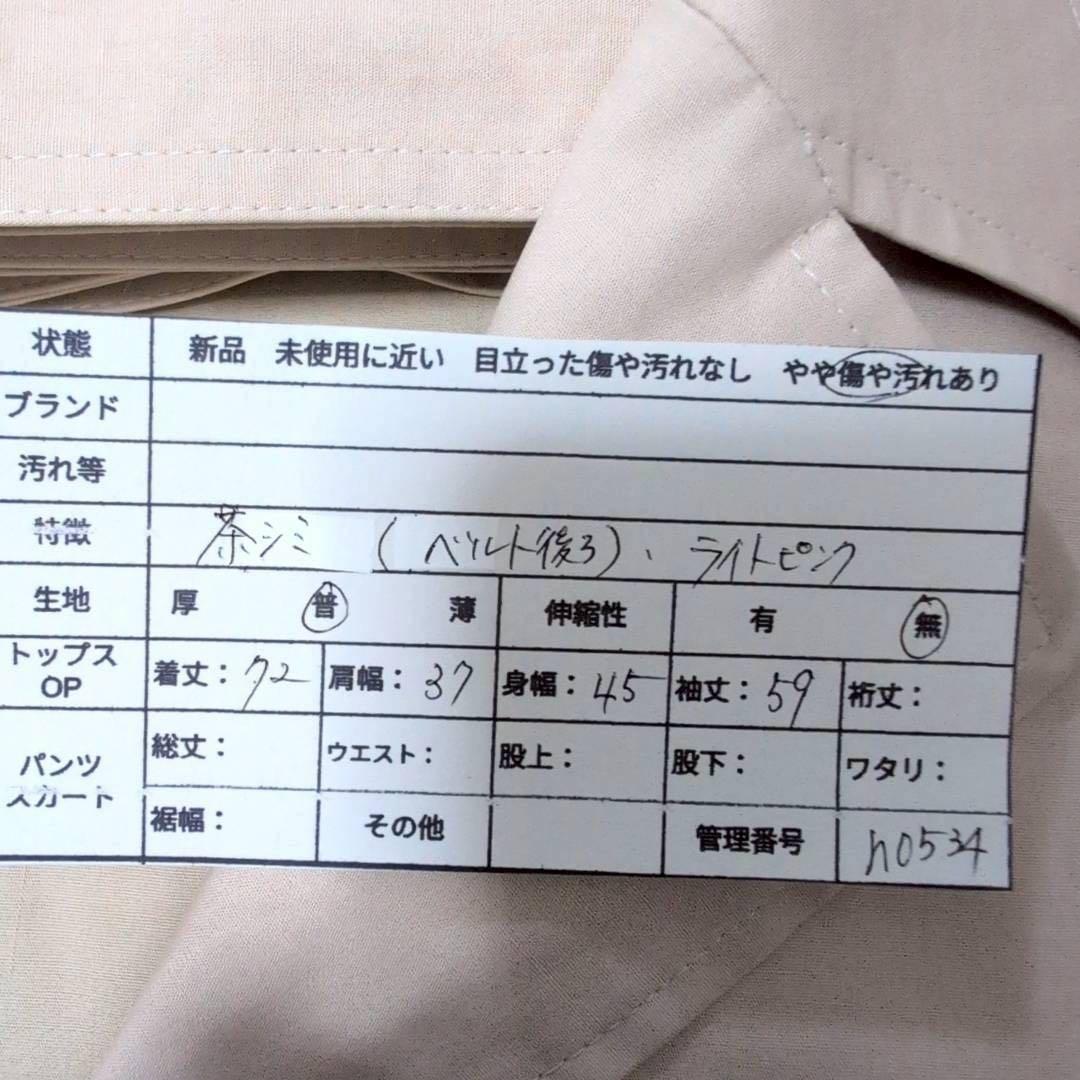 状態 新品 未使用に近い 目立った傷や汚れなし やや傷や汚れあり
ブランド
汚れ等
特徴 茶シミ (ベルト後ろ)、ライトピンク
生地 厚 普 薄 伸縮性 有 無
トップス OP 着丈:72 肩幅:37 身幅:45 袖丈:59 裄丈:
パンツ スカート 総丈: ウエスト: 股上: 股下: ワタリ:
裾幅: その他 管理番号 h0534